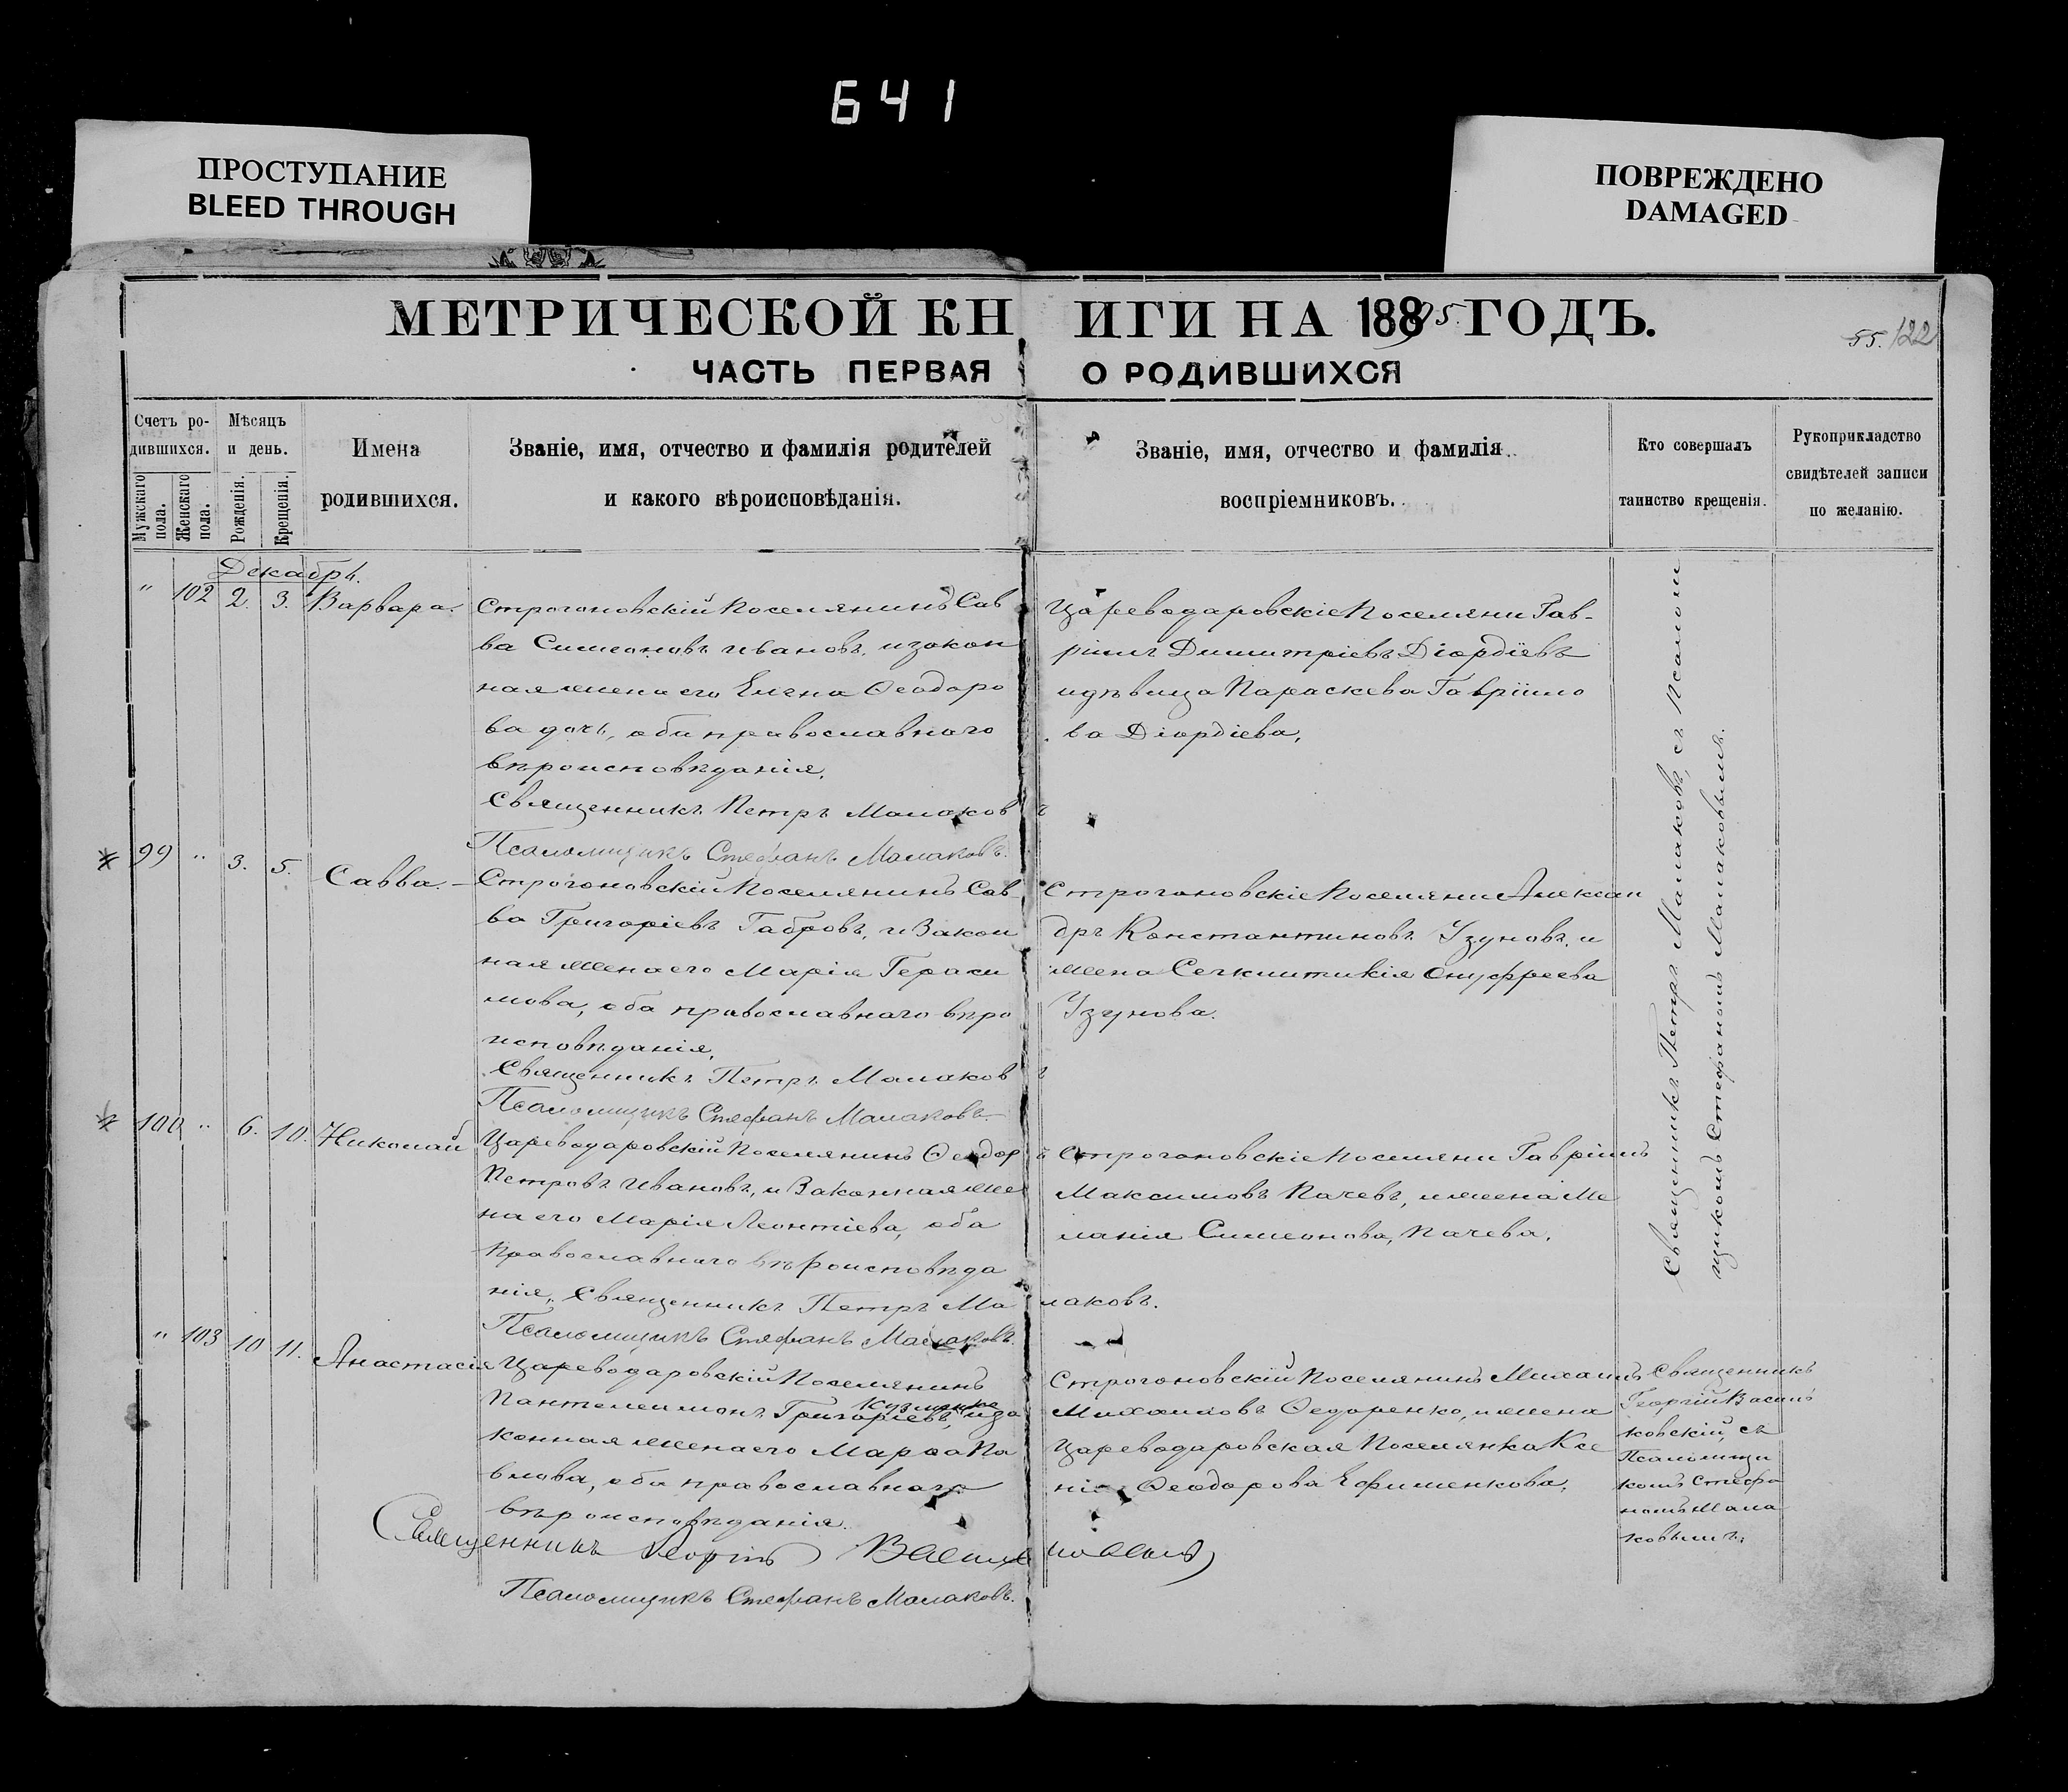 641
ПРОСТУПАНИЕ
BLEED THROUGH
ПОВРЕЖДЕНО
DAMAGED
МЕТРИЧЕСКОЙ КНИГИ НА 1895 ГОДЪ.
55. 122
ЧАСТЬ ПЕРВАЯ О РОДИВШИХСЯ
Счетъ родившихся.
Мужскаго пола.
Женскаго пола.
Мѣсяцъ и день.
Рожденія.
Крещенія.
Имена
родившихся.
Званіе, имя, отчество и фамилія родителей
и какого вѣроисповѣданія.
Званіе, имя, отчество и фамилія
воспріемниковъ.
Кто совершалъ
таинство крещенія.
Рукоприкладство
свидѣтелей записи
по желанію.
Декабрь.
" 102 2. 3. Варвара.
Строгоновскій Поселянинъ Сав
ва Симеоновъ Ивановъ, и закон
ная жена его Елена Ѳеодоро
ва дочь, оба православнаго
вѣроисповѣданія.
Священникъ Петръ Малаковъ
Псаломщикъ Стефанъ Малаковъ.
Цареводаровскіе Поселяни Гав-
ріилъ Димитріевъ Діордіевъ
и дѣвица Параскева Гавріило
ва Діордіева,
99 " 3. 5. Савва.
Строгоновскій Поселянинъ Сав
ва Григоріевъ Габровъ, и Закон
ная жена его Марія Гераси
мова, оба православнаго вѣро
исповѣданія,
Священникъ Петръ Малаковъ
Псаломщикъ Стефанъ Малаковъ
Строгоновскіе Поселяни Алексан
дръ Константиновъ Узуновъ, и
жена Онуфреева
Узунова.
100 " 6. 10. Николай
Цареводаровскій Поселянинъ Ѳеодоръ
Петровъ Ивановъ, и Законная же
на его Марія Леонтіева, оба
Православнаго вѣроисповѣда
нія, Священникъ Петръ Малаковъ.
Псаломщикъ Стефанъ Малаковъ.
Строгоновскіе Поселяни Гавріилъ
Максимовъ Пачевъ, и жена Ме
ланія Симеонова, Пачева.
Священникъ Петръ Малаковъ, съ Псаломщикомъ Стефаномъ Малаковымъ.
" 103 10 11. Анастасія
Цареводаровскій Поселянинъ
Пантелеимонъ Григоріевъ, и за
конная жена его Марѳа Па
влова, оба православнаго
вѣроисповѣданія.
Священникъ Георгій
Псаломщикъ Стефанъ Малаковъ.
Строгоновскій Поселянинъ Михаилъ
Михаиловъ Ѳедоренко, и жена
Цареводаровская Поселянка Ксе
нія Ѳеодорова Ефименкова,
Священникъ
Георгій Василь
ковскій, съ
Псаломщи
комъ Стефа
номъ Мала
ковымъ.